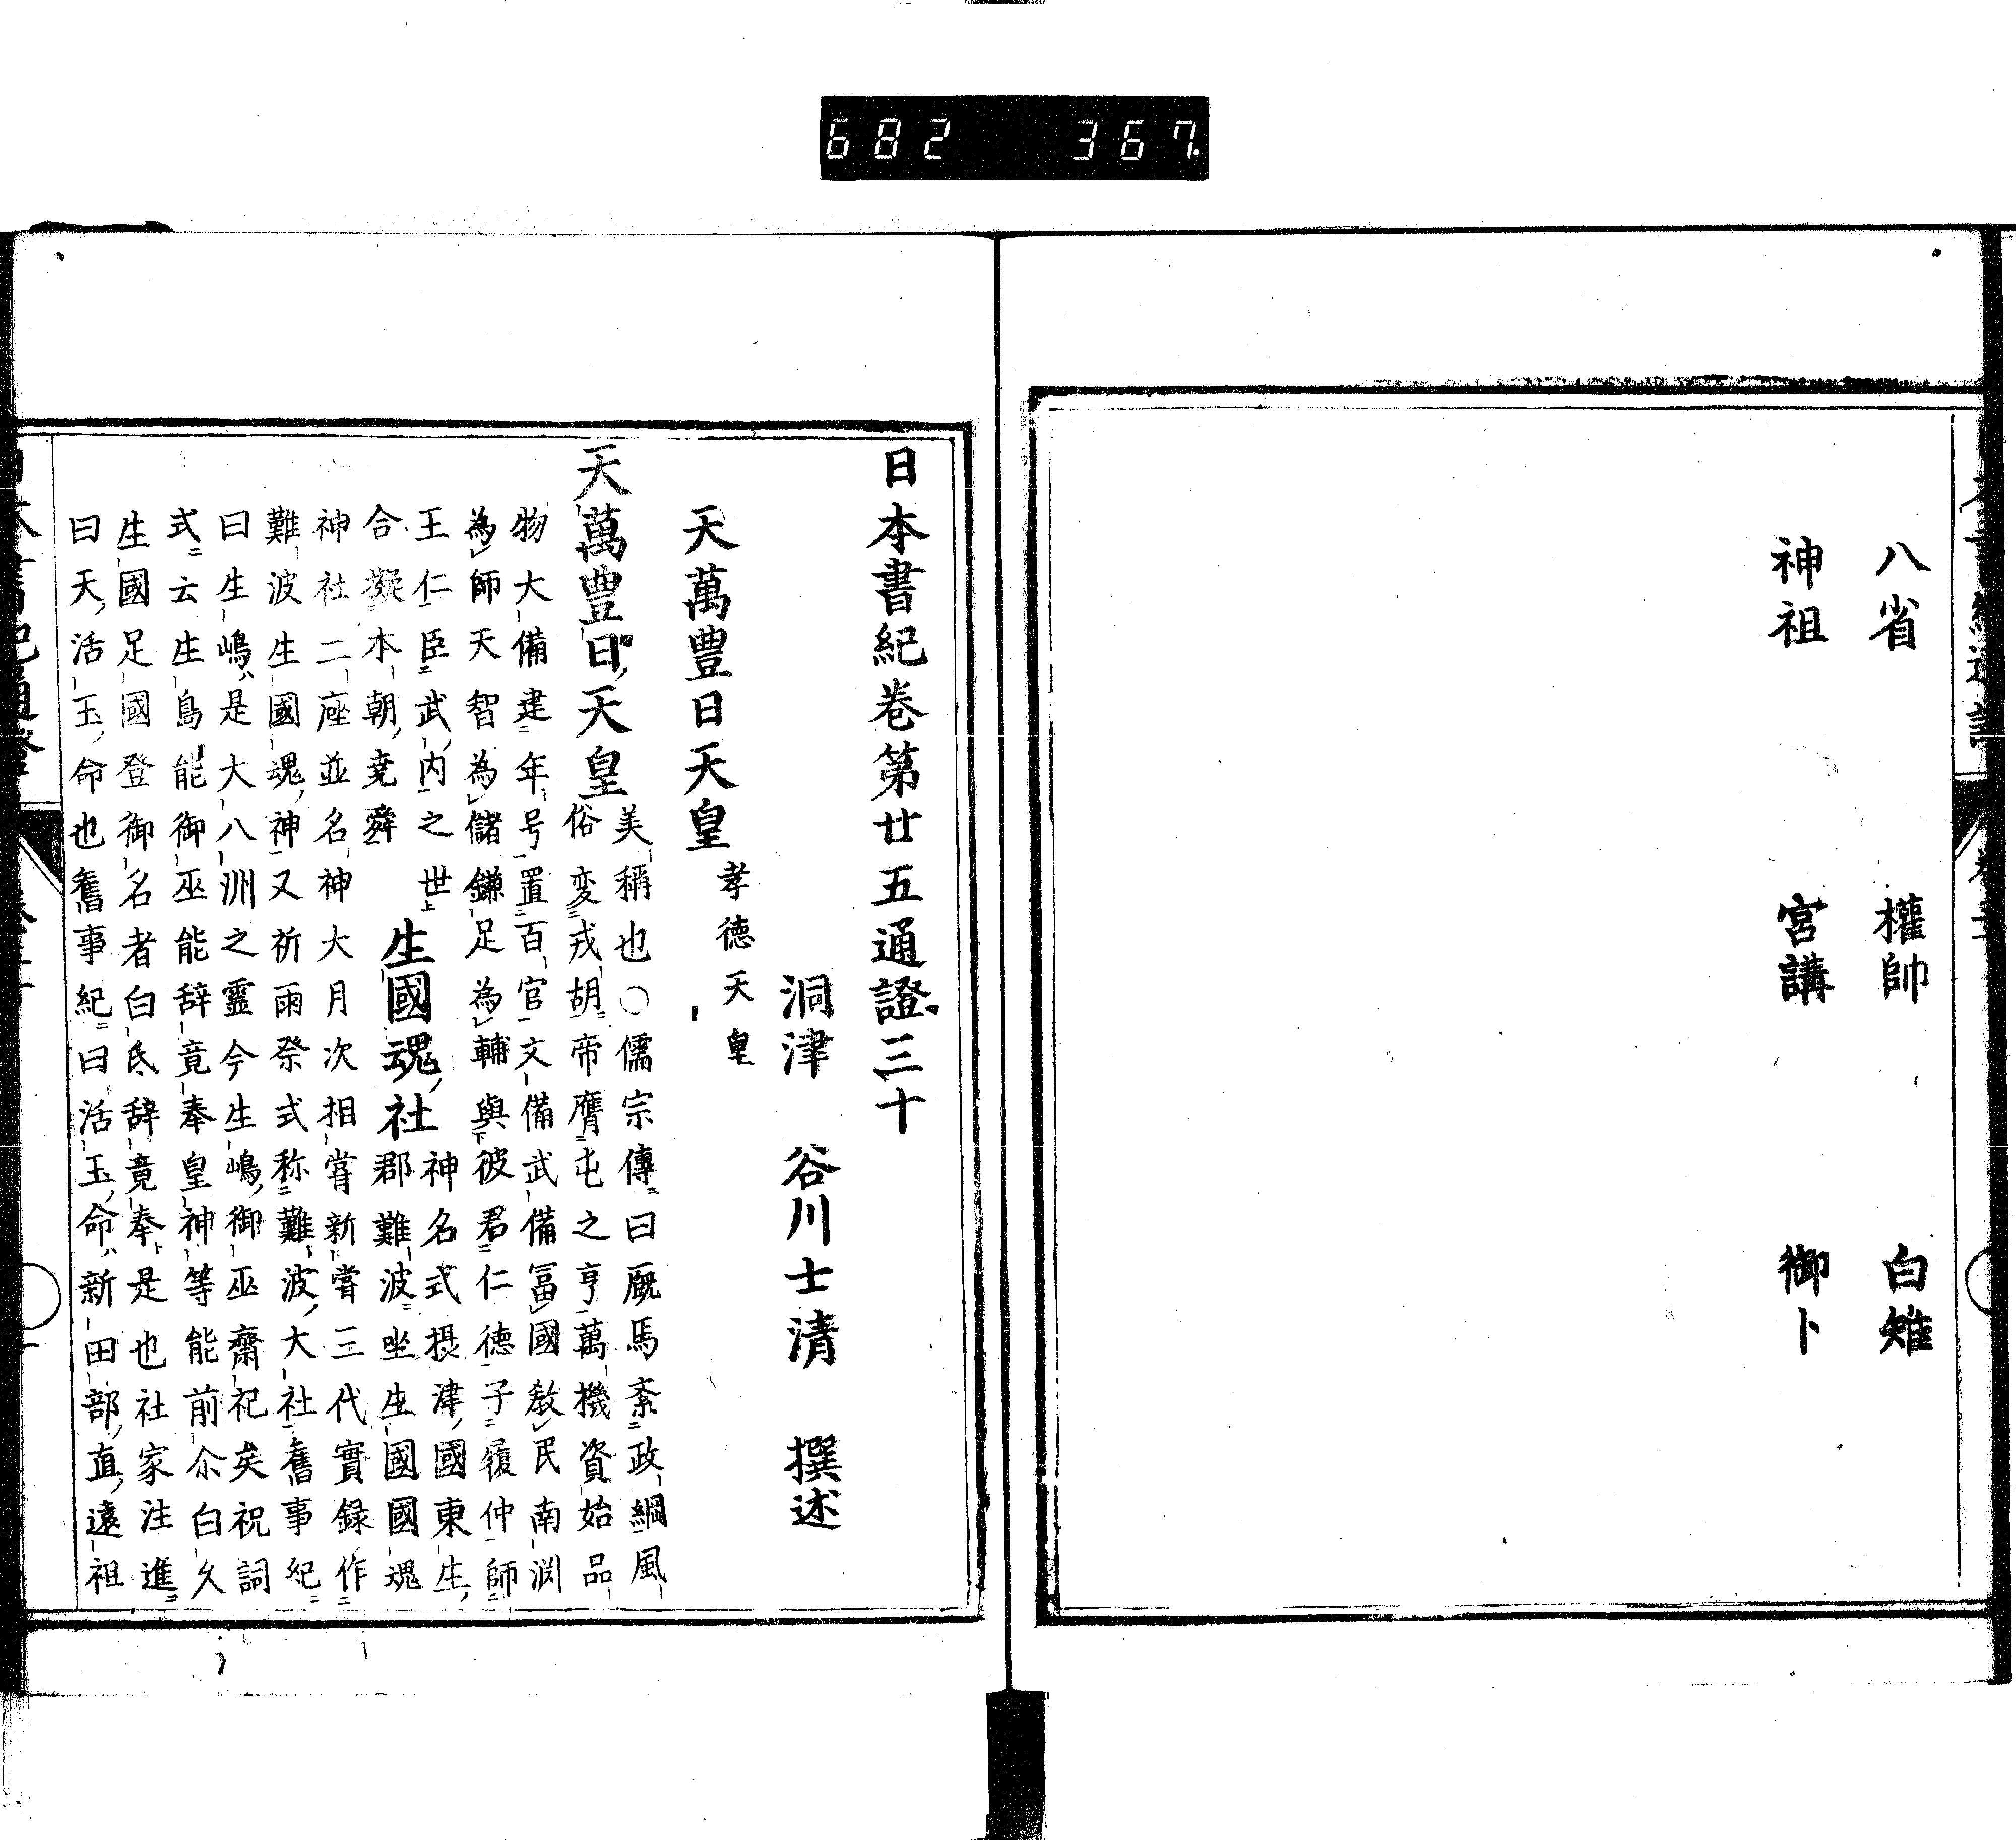 682 367
八省 權帥 白雉
神祖 宮講 御卜
日本書紀卷第廿五通證三十
洞津 谷川士清 撰述
天萬豊日天皇 孝德天皇
天萬豊日天皇 美稱也○儒宗傳曰厩馬紊政綱風
俗変戎胡帝膺屯之亨萬機資始品
物大備建年号置百官文備武備冨國教民南淵
為師天智為儲鎌足為輔與彼君仁德子履仲師
王仁臣武内之世
合擬本朝堯舜
生國魂社 神名式摂津國東生
郡難波坐生國國魂
神社二座並名神大月次相甞新甞三代實録作
難波生國魂神又祈雨祭式称難波大社舊事紀
曰生嶋是大八洲之靈今生嶋御巫齋祀矣祝詞
式云生島能御巫能辞竟奉皇神等能前尒白久
生國足國登御名者白氐辞竟奉是也社家注進
曰天活玉命也舊事紀曰活玉命新田部直遠祖